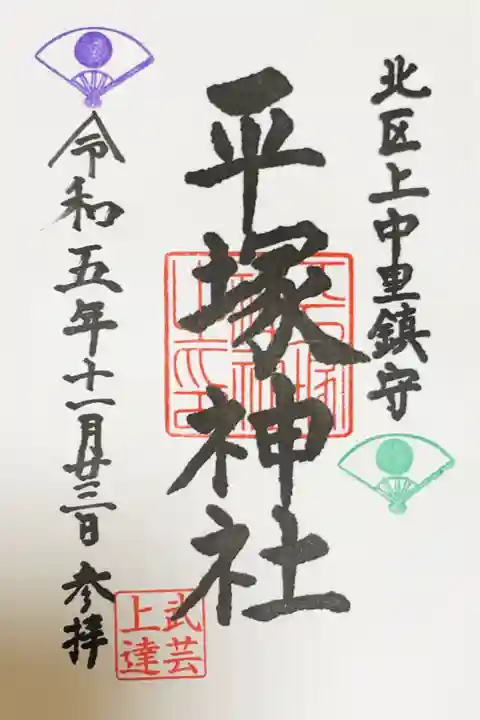 北区上中里鎮守
平塚神社
令和五年十一月廿三日 参拝
武芸
上達